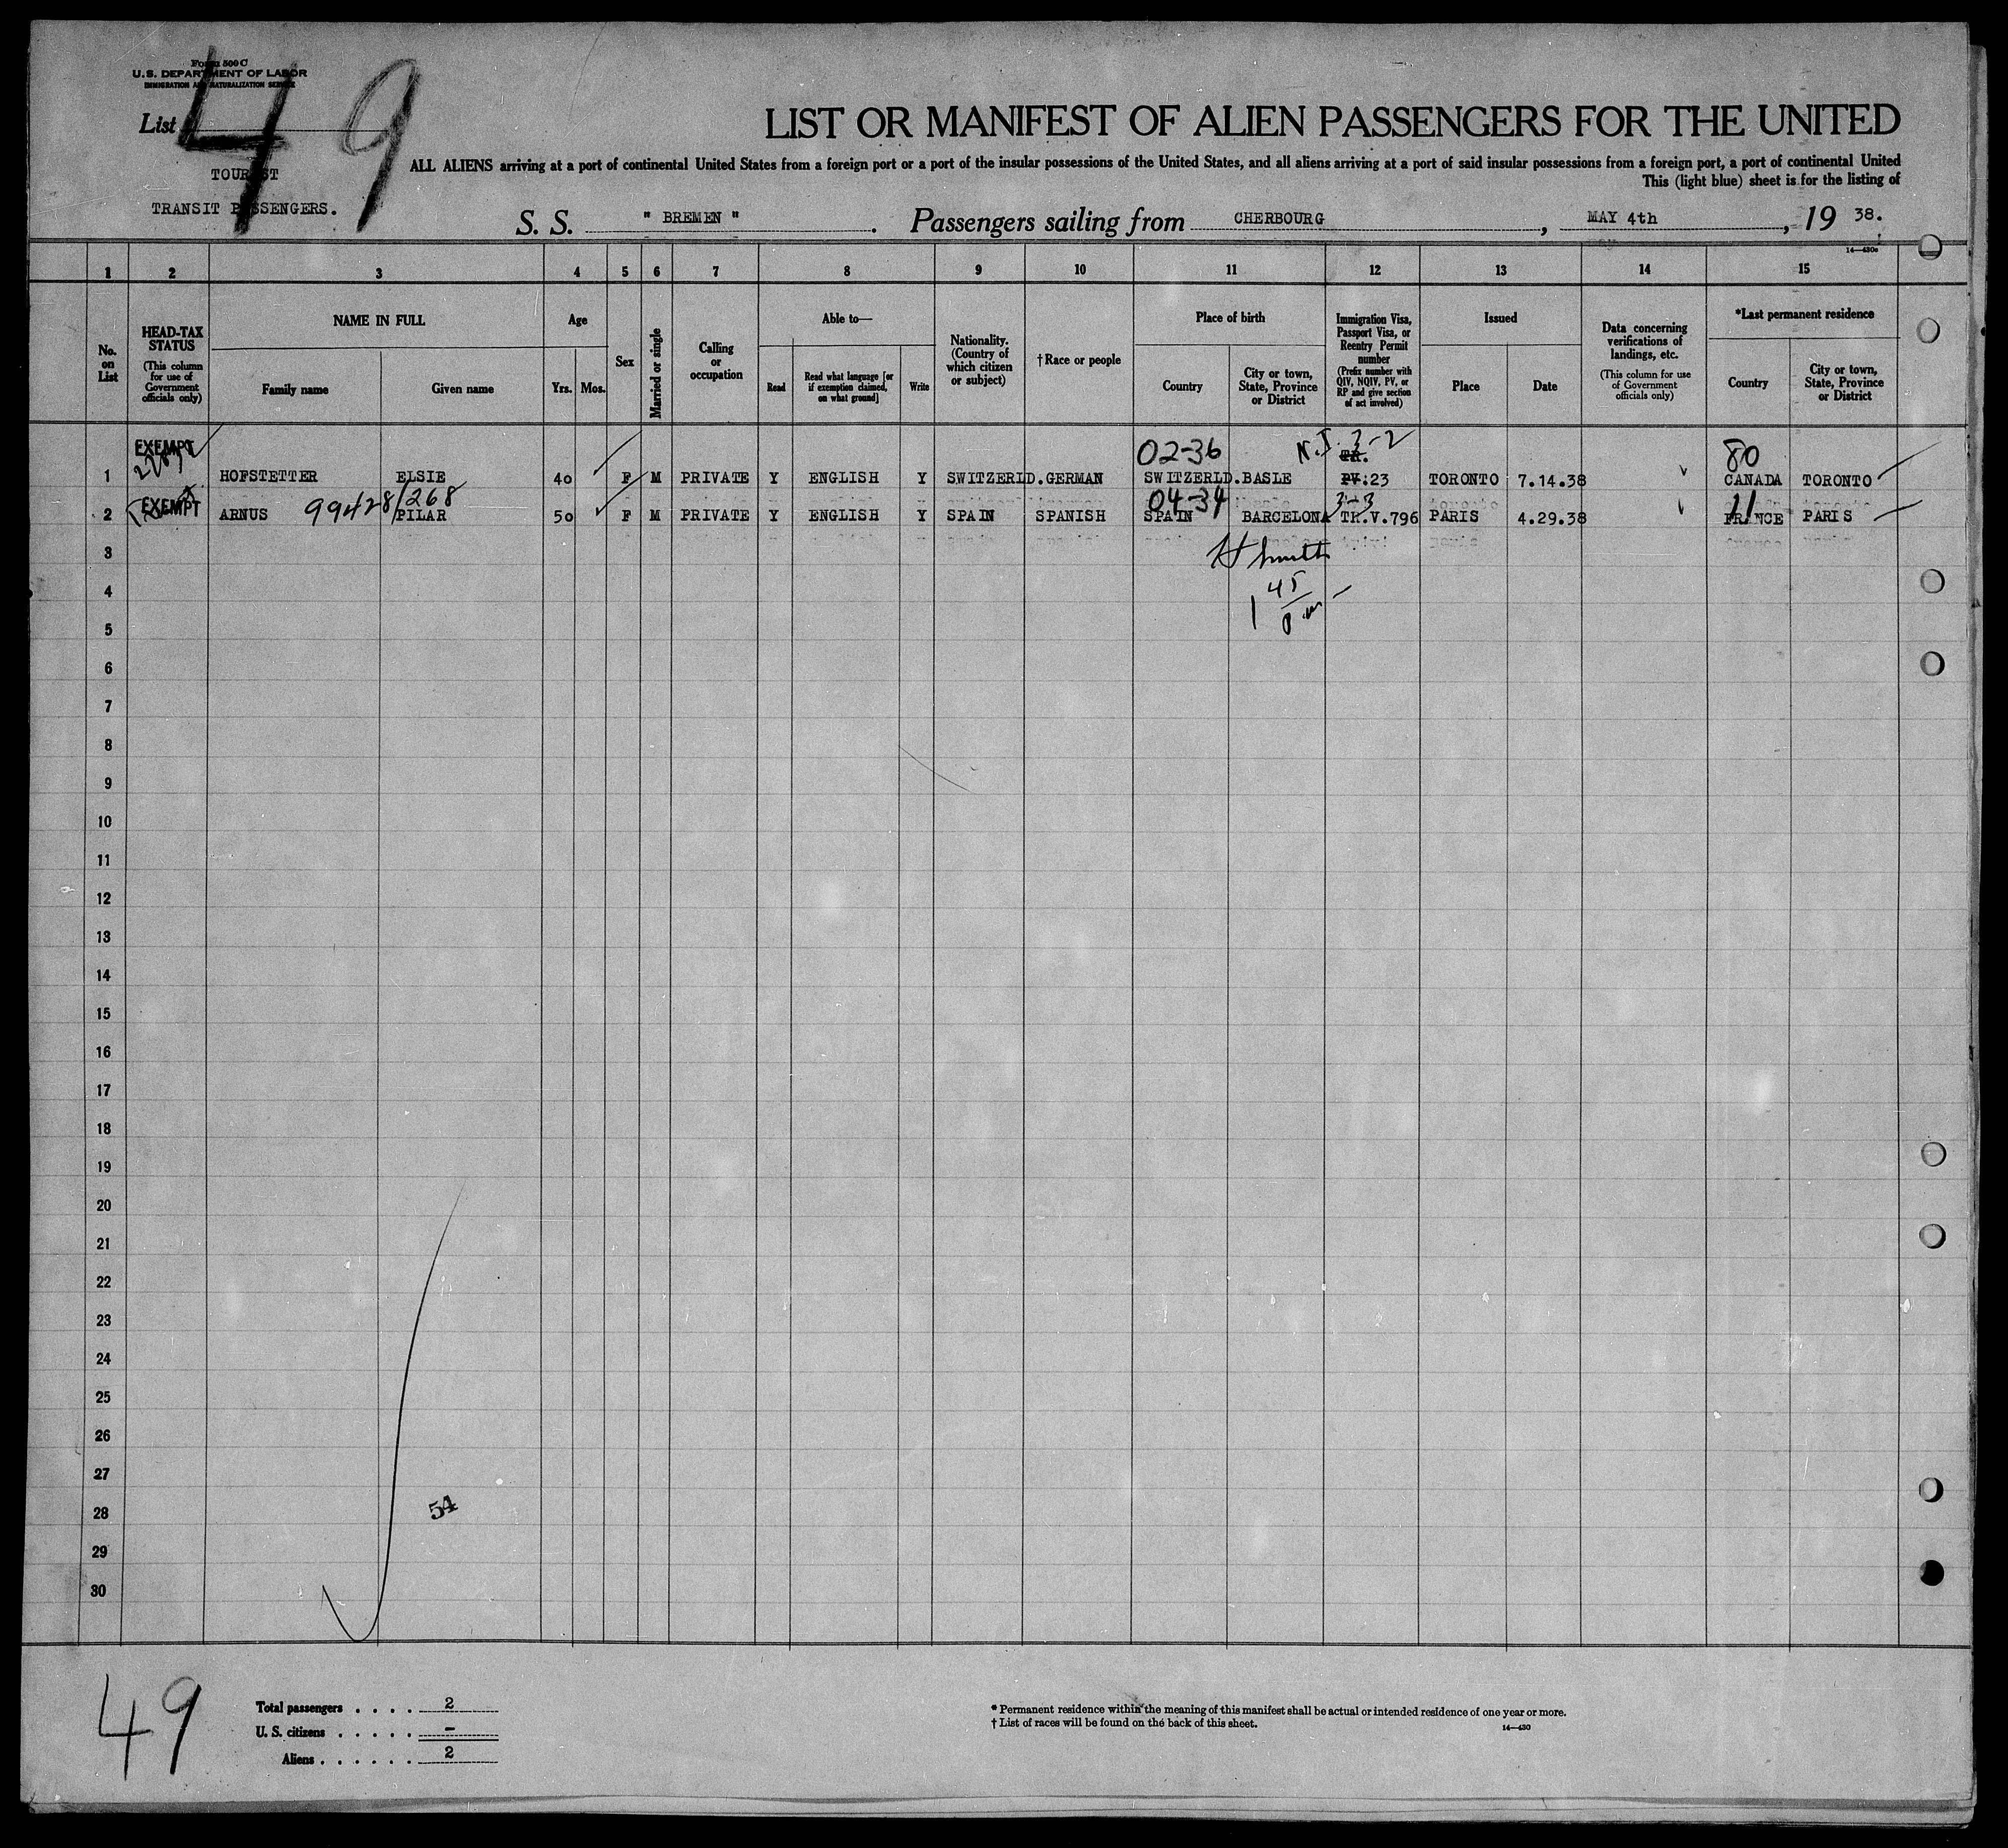 Form 500 C
U.S. DEPARTMENT OF LABOR
IMMIGRATION AND NATURALIZATION SERVICE
List 49
TOURIST
TRANSIT PASSENGERS.
LIST OR MANIFEST OF ALIEN PASSENGERS FOR THE UNITED
ALL ALIENS arriving at a port of continental United States from a foreign port or a port of the insular possessions of the United States, and all aliens arriving at a port of said insular possessions from a foreign port, a port of continental United
This (light blue) sheet is for the listing of
S. S. " BREMEN ". Passengers sailing from CHERBOURG, MAY 4th, 19 38.
1 2 3 4 5 6 7 8 9 10 11 12 13 14 15
No. on List
HEAD-TAX STATUS (This column for use of Government officials only)
NAME IN FULL
Family name
Given name
Age
Yrs. Mos.
Sex
Married or single
Calling or occupation
Able to—
Read
Read what language [or if exemption claimed, on what ground]
Write
Nationality. (Country of which citizen or subject)
†Race or people
Place of birth
Country
City or town, State, Province or District
Immigration Visa, Passport Visa, or Reentry Permit number (Prefix number with QIV, NQIV, PV, or RP and give section of act involved)
Issued
Place
Date
Data concerning verifications of landings, etc. (This column for use of Government officials only)
*Last permanent residence
Country
City or town, State, Province or District
EXEMPT 02-36 3-2 TR. 80
1 HOFSTETTER ELSIE 40 F M PRIVATE Y ENGLISH Y SWITZERLD. GERMAN SWITZERLD. BASLE PV:23 TORONTO 7.14.38 CANADA TORONTO
EXEMPT 99428/268 04-34 3-3 11
2 ARNUS PILAR 50 F M PRIVATE Y ENGLISH Y SPAIN SPANISH SPAIN BARCELONA TR.V.796 PARIS 4.29.38 FRANCE PARIS
3
4
5
6
7
8
9
10
11
12
13
14
15
16
17
18
19
20
21
22
23
24
25
26
27
28
29
30
54
49
Total passengers . . . . 2
U. S. citizens . . . . . –
Aliens . . . . . . 2
* Permanent residence within the meaning of this manifest shall be actual or intended residence of one year or more.
† List of races will be found on the back of this sheet.
14—430